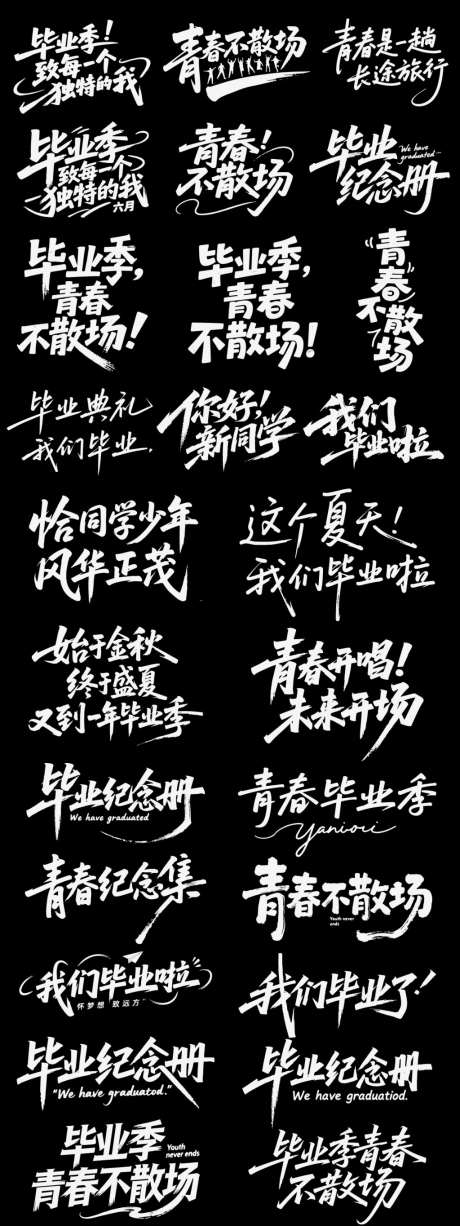 毕业季！
致每一个
独特的我
青春不散场
青春是一趟
长途旅行
毕业季
致每一个
独特的我
六月
青春！
不散场
毕业
We have
graduated...
纪念册
毕业季，
青春
不散场！
毕业季，
青春
不散场！
“青
春”
不散
场
毕业典礼
我们毕业.
你好，
新同学
我们
毕业啦
恰同学少年
风华正茂
这个夏天！
我们毕业啦
始于金秋
终于盛夏
又到一年毕业季
青春开唱！
未来开场
毕业纪念册
We have graduated
青春毕业季
青春纪念集
青春不散场
Youth never
ends
我们毕业啦
怀梦想 致远方
我们毕业了！
毕业纪念册
"We have graduatod."
毕业纪念册
We have graduatiod.
毕业季
Youth
never ends
青春不散场
毕业季青春
不散场